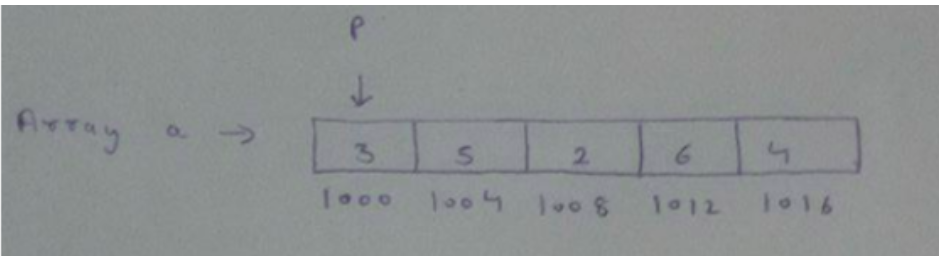 P
Array a →
3 5 2 6 4
1000 1004 1008 1012 1016